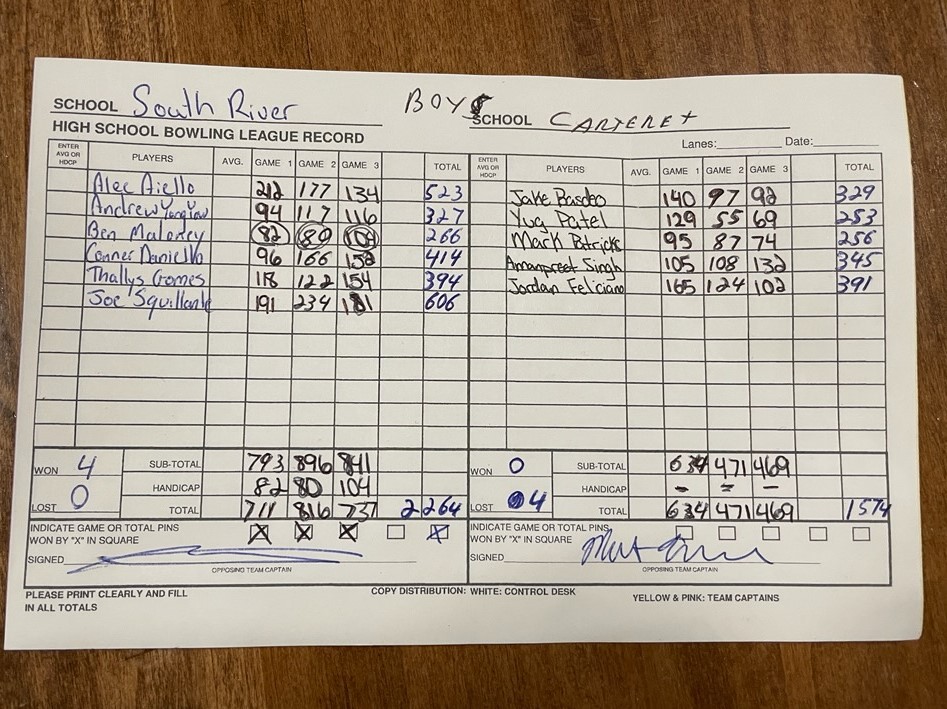 SCHOOL South River BOYS SCHOOL CARTERET
HIGH SCHOOL BOWLING LEAGUE RECORD Lanes: Date:
ENTER AVG OR HDCP PLAYERS AVG. GAME 1 GAME 2 GAME 3 TOTAL ENTER AVG OR HDCP PLAYERS AVG. GAME 1 GAME 2 GAME 3 TOTAL
Alec Aiello 212 177 134 523 Jake 140 97 92 329
Andrew 94 117 116 327 Yug Patel 129 55 69 253
Ben Maloney 82 80 104 266 Mark Patricks 95 87 74 256
Conner Daniello 96 166 152 414 Amanpreet Singh 105 108 132 345
Thallys Gomes 118 122 154 394 Jordan Feliciano 165 124 102 391
Joe Squillante 191 234 181 606
WON 4 SUB-TOTAL 793 896 841 WON 0 SUB-TOTAL 634 471 469
HANDICAP 82 80 104 HANDICAP - - -
LOST 0 TOTAL 711 816 737 2264 LOST 4 TOTAL 634 471 469 1574
INDICATE GAME OR TOTAL PINS X X X X INDICATE GAME OR TOTAL PINS
WON BY "X" IN SQUARE WON BY "X" IN SQUARE
SIGNED SIGNED
OPPOSING TEAM CAPTAIN OPPOSING TEAM CAPTAIN
PLEASE PRINT CLEARLY AND FILL COPY DISTRIBUTION: WHITE: CONTROL DESK YELLOW & PINK: TEAM CAPTAINS
IN ALL TOTALS